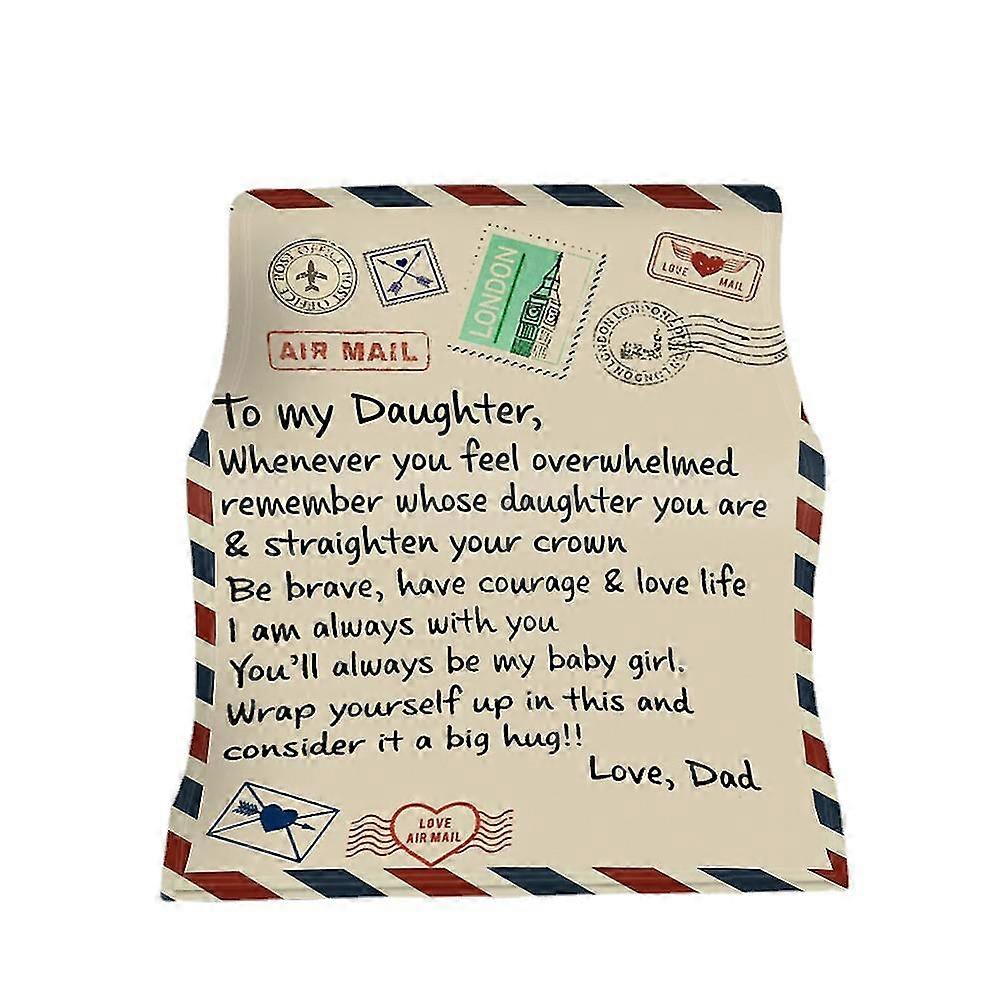 POST OFFICE POST OFFICE
LONDON
LOVE MAIL
AIR MAIL
To my Daughter,
Whenever you feel overwhelmed
remember whose daughter you are
& straighten your crown
Be brave, have courage & love life
I am always with you
You'll always be my baby girl.
Wrap yourself up in this and
consider it a big hug!!
Love, Dad
LOVE
AIR MAIL